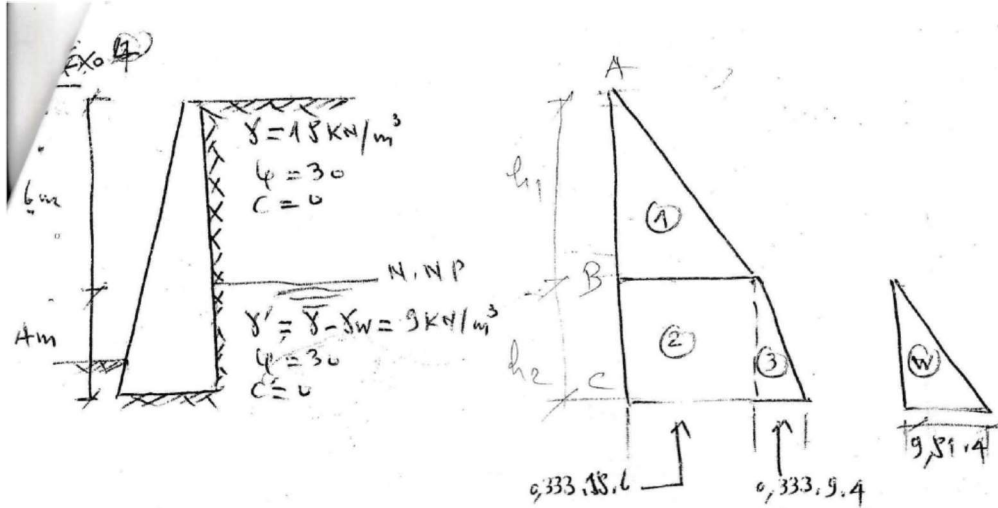 Exo 4
6m
4m
γ = 18 KN/m³
φ = 30
C = 0
N.NP
γ' = γ - γw = 9 KN/m³
φ = 30
C = 0
A
h₁
1
B
2
3
h₂
C
0,333.18.6
0,333.9.4
W
9,81.4